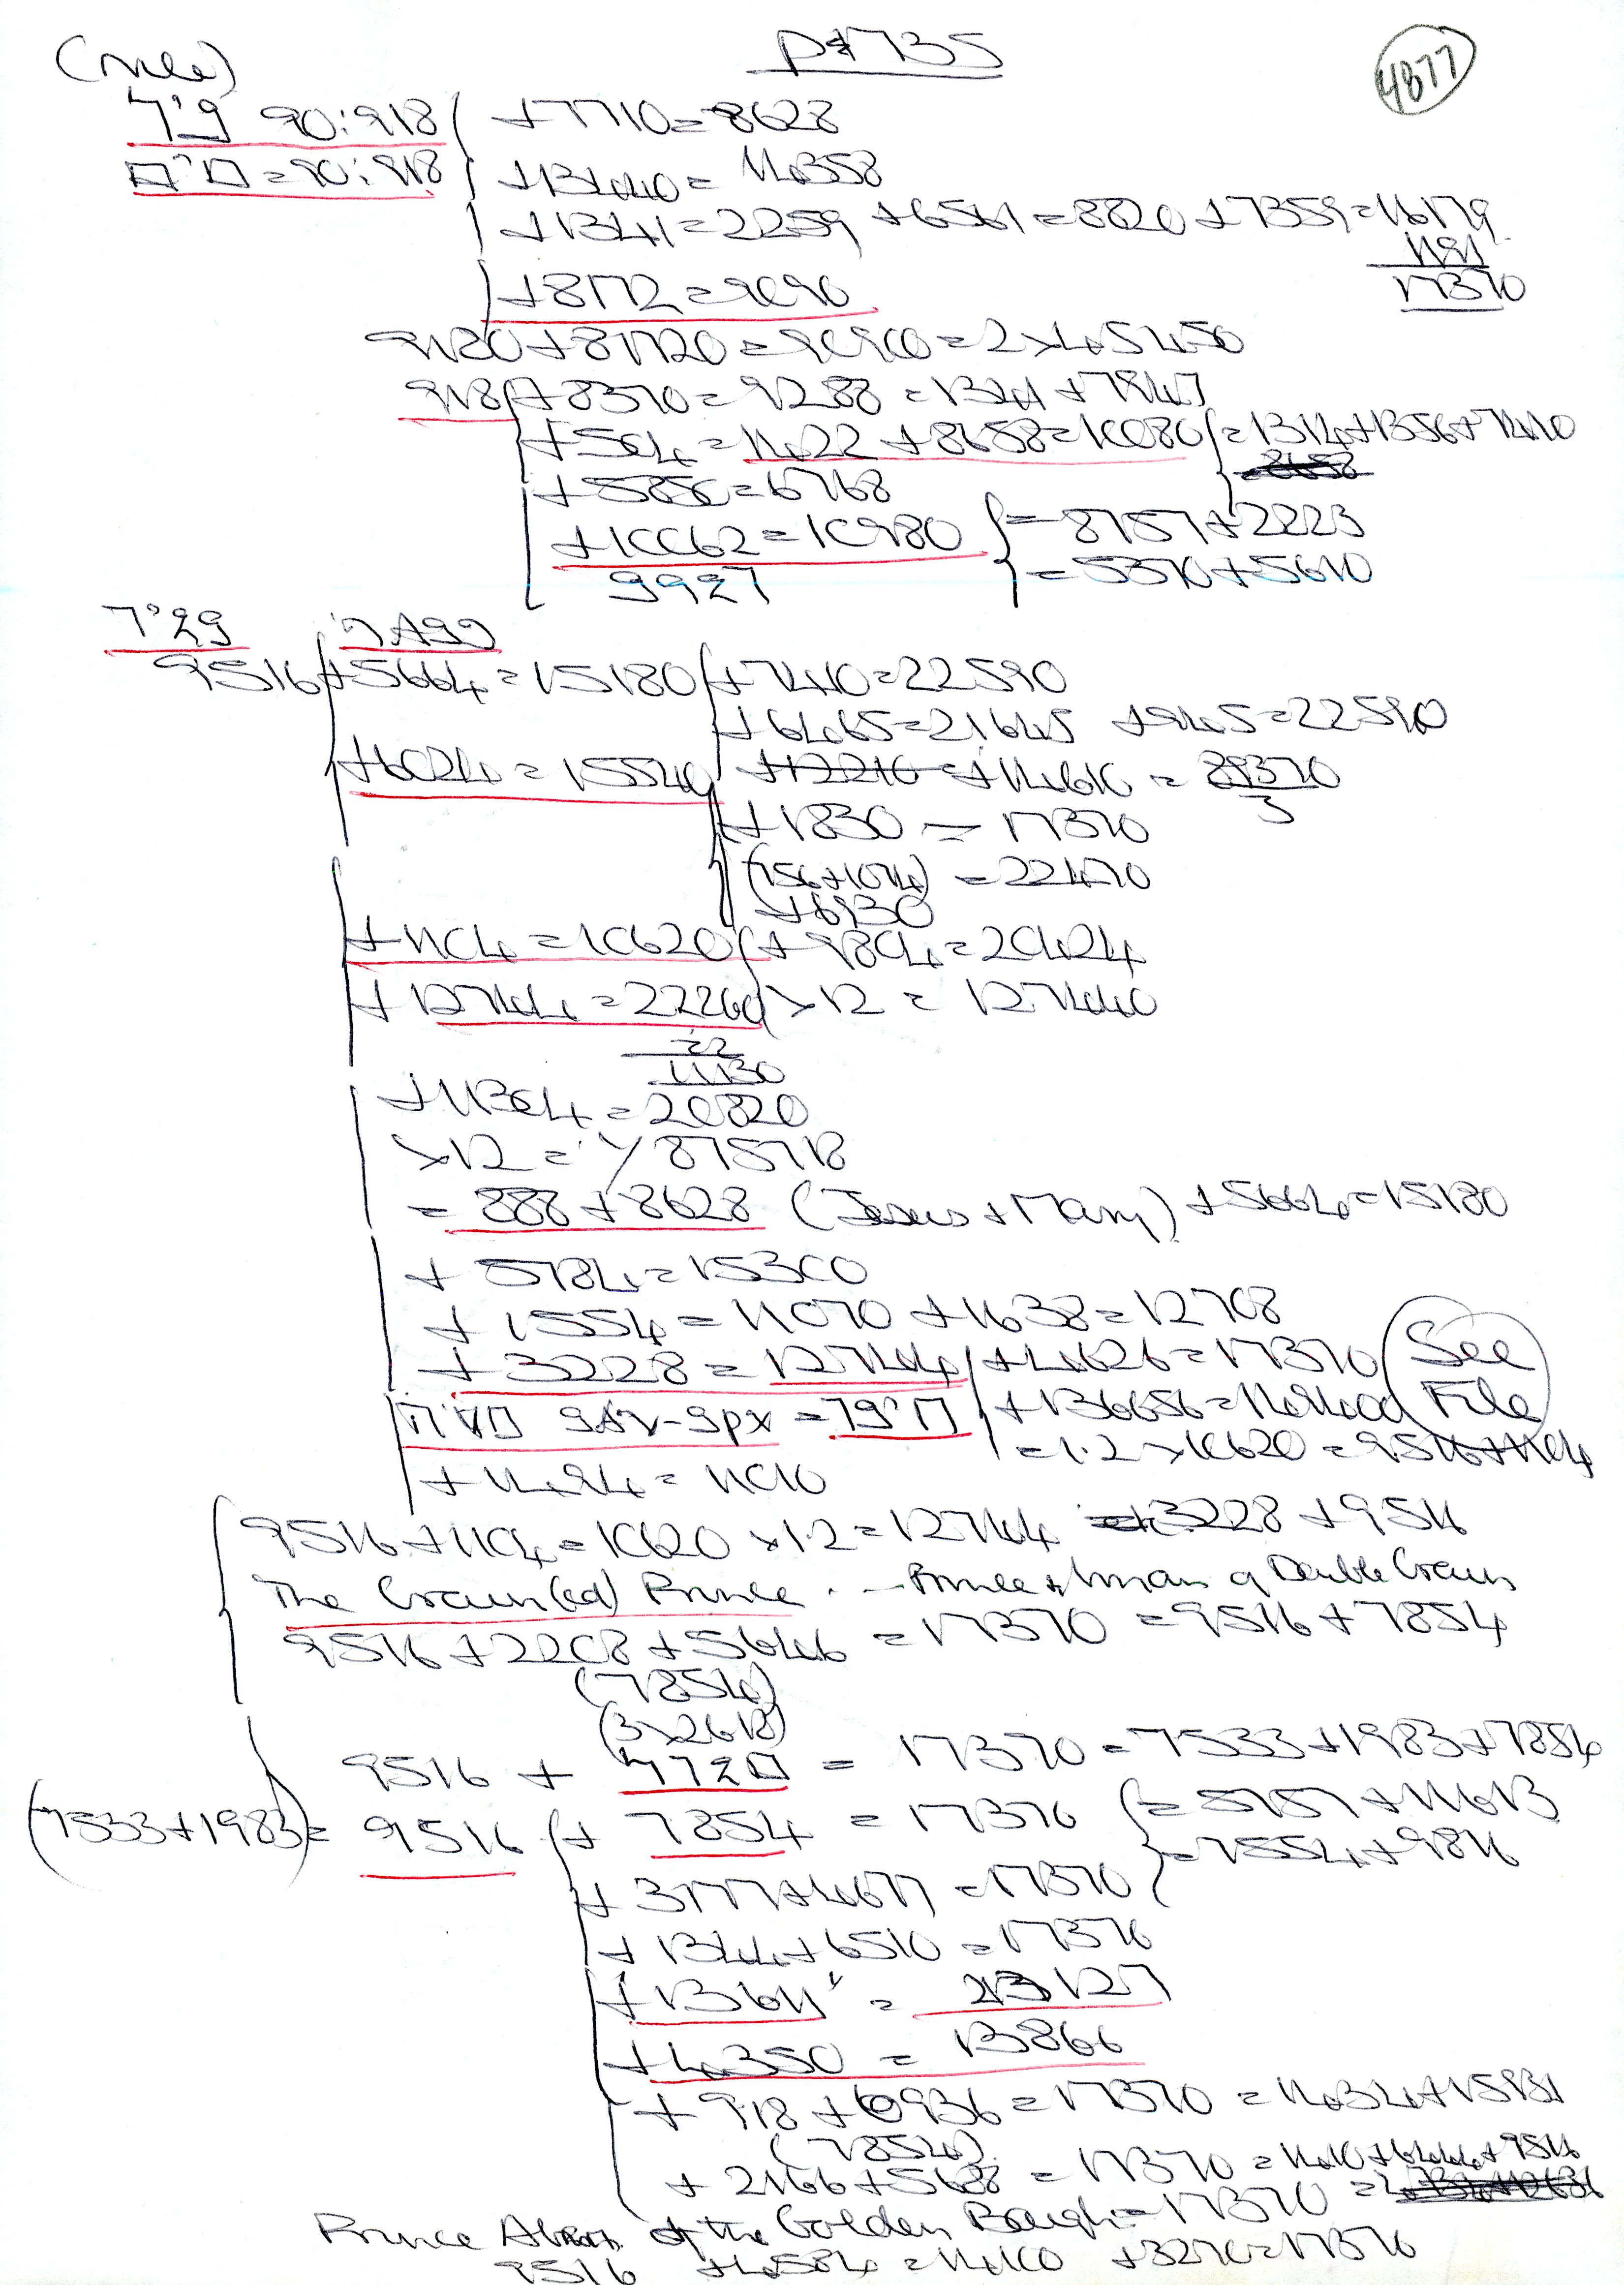 (rule)
P+1735
4877
90:918 +7710=8628
=90:918 +13440= 14358
+1341=2259 +6561=8820 +7359=16179
1191
17370
+8172=9090
9180+81720=90900=2×45450
918 +8370=9288=1341+7947
+504=1422 +8658=10080 =1314+1356+7410
+5850=6768
+10062=10980 =8757+2223
9927 =5370+5610
9516 +5664=15180 +7410=22590
+6465=21645 +945=22590
+6024=15540 +14610 =
+1830 = 17370
(756+1074) =22470
+6930
+1104=10620 +9804=20424
+12744=22260 ×12 = 127440
22
11130
+11304=20820
×12 =
=888+8628 (Jesus+Mary) +5664=15180
+5784=15300
+1554=11070 +1638=12708
+3228=12744 +4626=17370 See
+136656=149400 File
=1.2×10620=9516+1104
+1494=11010
9516+1104=10620×1.2=12744 3228+9516
The Crown(ed) Prince
9516+2208+5646 =17370 =9516+7854
(7854)
(3×2618)
9516 + = 17370=7533+1983+7854
(7533+1983)= 9516 + 7854 = 17370 =5757+11613
=7554+9816
+3177+4677 =17370
+1344+6510=17370
+13611 = 23127
+4350 = 13866
+918+6936=17370
(7854)
+2166+5688 =17370=1410+6444+9516
Prince of the Golden Bough=17370
9516 +4584=14100 +3270=17370